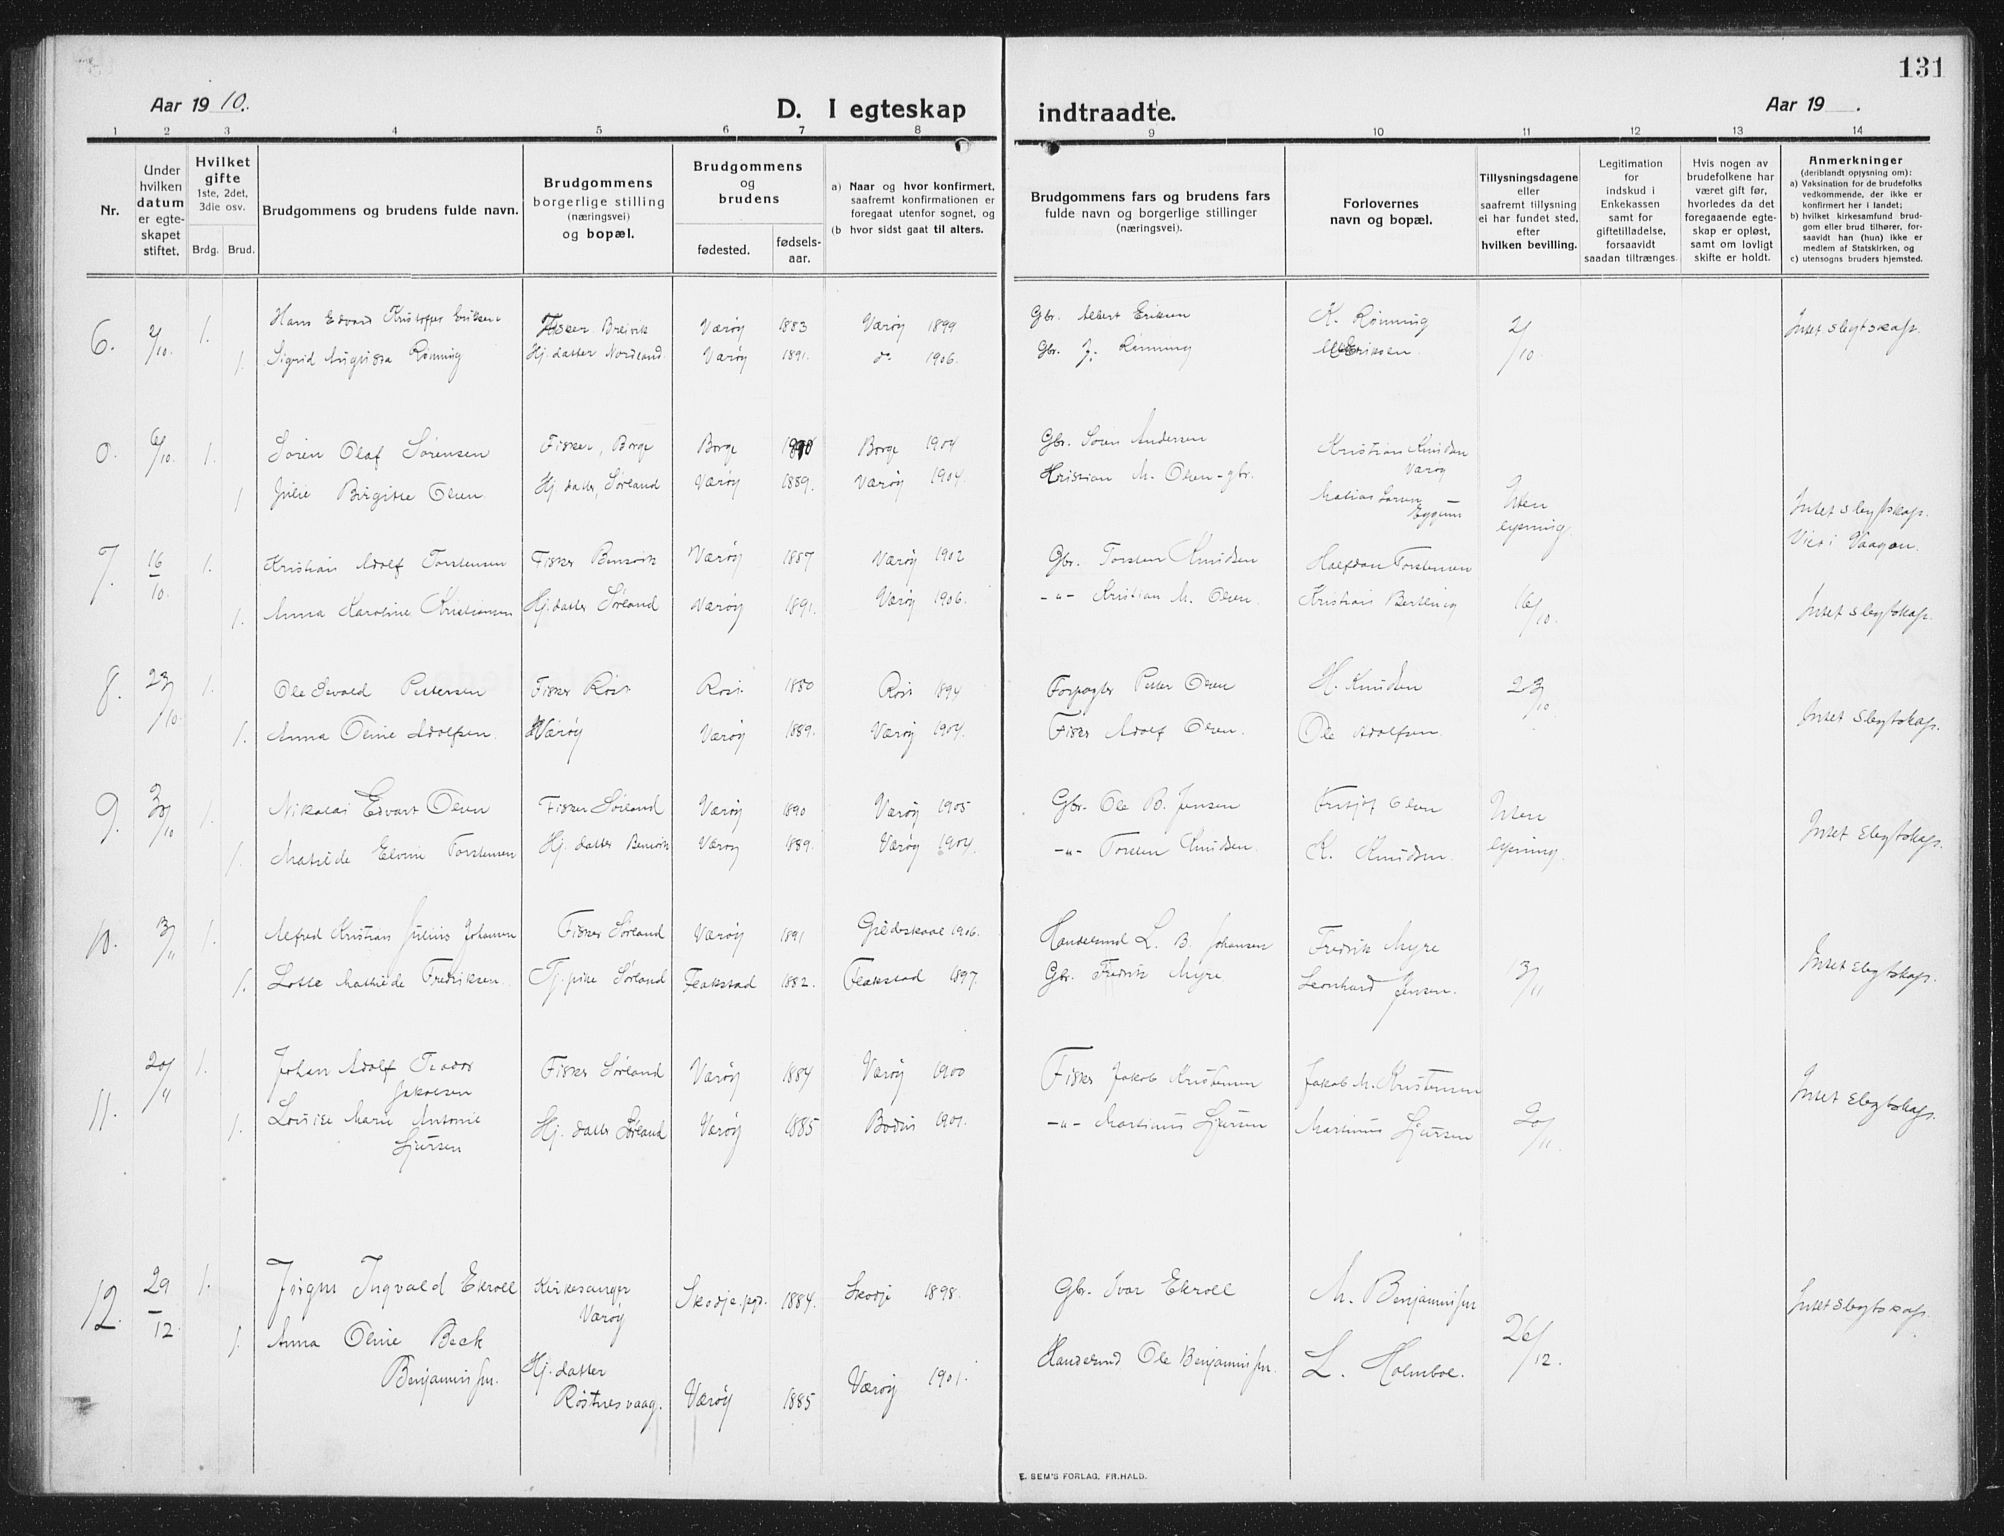 131
Aar 19 10.
D. I egteskap indtraadte.
Aar 19 .
1 2 3 4 5 6 7 8 9 10 11 12 13 14
Nr.
Under hvilken datum er egte- skapet stiftet.
Hvilket gifte
1ste, 2det, 3die osv.
Brdg. Brud.
Brudgommens og brudens fulde navn.
Brudgommens borgerlige stilling (næringsvei) og bopæl.
Brudgommens og brudens
fødested.
fødsels- aar.
a) Naar og hvor konfirmert, saafremt konfirmationen er foregaat utenfor sognet, og
(b hvor sidst gaat til alters.
Brudgommens fars og brudens fars fulde navn og borgerlige stillinger (næringsvei).
Forlovernes navn og bopæl.
Tillysningsdagene eller saafremt tillysning ei har fundet sted, efter hvilken bevilling.
Legitimation for indskud i Enkekassen samt for giftetilladelse, forsaavidt saadan tiltrænges.
Hvis nogen av brudefolkene har været gift før, hvorledes da det foregaaende egte- skap er opløst, samt om lovligt skifte er holdt.
Anmerkninger (deriblandt opysning om):
a) Vaksination for de brudefolks vedkommende, der ikke er konfirmert her i landet;
b) hvilket kirkesamfund brud- gom eller brud tilhører, for- saavidt han (hun) ikke er medlem af Statskirken, og
c) utensogns bruders hjemsted.
6. 2/10 1. Hans Edvard Kristoffer Eriksen Fisker Breivik Værøy 1883 Værøy 1899 Gbr. Albert Eriksen K. Rønning 2/10 Intet slegtskap.
1. Sigrid Augusta Rønning Hj. datter Nordland Værøy 1891. do 1906. Gbr. J. Rønning Eriksen.
0. 6/10. 1. Søren Olaf Sørensen Fisker, Borge Borge Borge 1904 Gbr. Søren Andersen Kristian Knudsen Værøy
1 Julie Birgitte Olsen Hj. datter, Sørland Værøy 1889. Værøy 1904. Kristian M. Olsen - gbr. Matias Eggum Uten lysning. Intet slegtskap. Viet i Vaagan.
7. 16/10. 1. Kristian Adolf Torstensen Fisker Værøy 1887 Værøy 1902 Gbr. Torsten Knudsen Halfdan Torstensen
1. Anna Karoline Kristiansen Hj. datter Sørland Værøy 1891. Værøy 1906. -"- Kristian M. Olsen. Kristian Berthling 16/10. Intet slegtskap.
8. 23/10. 1. Ole Sevald Pettersen Fisker Røst Røst. 1880 Røst 1894 Forpagter Petter Olsen H. Knudsen 23/10
1. Anna Oline Adolfsen. Værøy Værøy 1889. Værøy 1904. Fisker Adolf Olsen. Ole Adolfsen. Intet slegtskap.
9. 30/10 1. Nikolai Edvart Olsen Fisker Sørland Værøy 1890 Værøy 1905 Gbr. Ole B. Jensen Fritjof Olsen Uten lysning.
1. Matilde Elvine Torstensen Hj. datter Værøy 1889. Værøy 1904. -"- Torsten Knudsen. K. Knudsen. Intet slegtskap.
10. 13/11 1. Alfred Kristian Julius Johansen Fisker Sørland Værøy 1891 Gildeskaal 1906. Handelsmd L. B. Johansen Fredrik Myre
1. Lotte Mathilde Fredriksen. Tj. pike Sørland Flakstad 1882. Flakstad 1897. Gbr. Fredrik Myre Leonhard Jensen. 13/11 Intet slegtskap.
11. 20/11 1. Johan Adolf Teodor Jakobsen Fisker Sørland Værøy 1884 Værøy 1900 Fisker Jakob Kristensen Jakob M. Kristensen Intet slegtskap.
1. Louise Marie Antonie Sjursen Hj. datter Sørland Værøy 1885 Bodin 1901. -"- Martinus Sjursen Martinus Sjursen 20/11.
12. 29/12. 1. Ingvald Ekroll Kirkesanger Værøy Skodje. pgd. 1884. Skodje 1898. Gbr. Ivar Ekroll M. Benjaminsen Intet slegtskap.
1. Anna Oline Beck Benjaminsen. Hj. datter Røstnesvaag. Værøy 1885 Værøy 1901. Handelsmd Ole Benjaminsen. L. Holmboe. 26/12.
E. SEM'S FORLAG, FR.HALD.